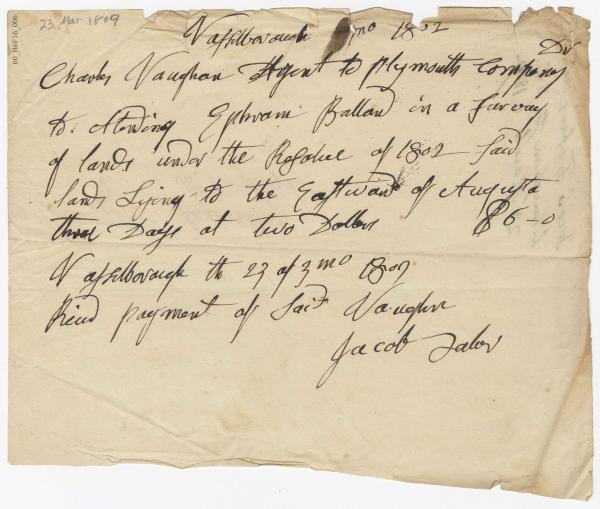 60_B6F16_006
23 Mar. 1809
Vasselborough mo 1802
Dr
Charles Vaughan Agent to Plymouth Company
to Ephraim Ballard in a Survey
of lands under the Resolve of 1802 Said
lands Lying to the Eastward of Augusta
three Days at two Dollars $6-0
Vasselborough th 23 of 3 mo 1809
payment of Said Vaughn
Jacob Taber